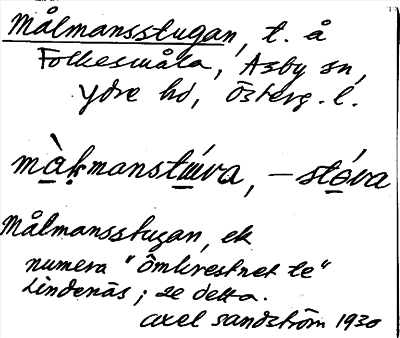 Målmansstugan, t. å
Folkesmåla, Asby sn,
Ydre hd, Österg. l.
målmanstɯ́va, –stǿva
Målmansstugan, ek
numera "Ömkrestnet te"
Lindenäs; se detta.
Axel Sandström 1930